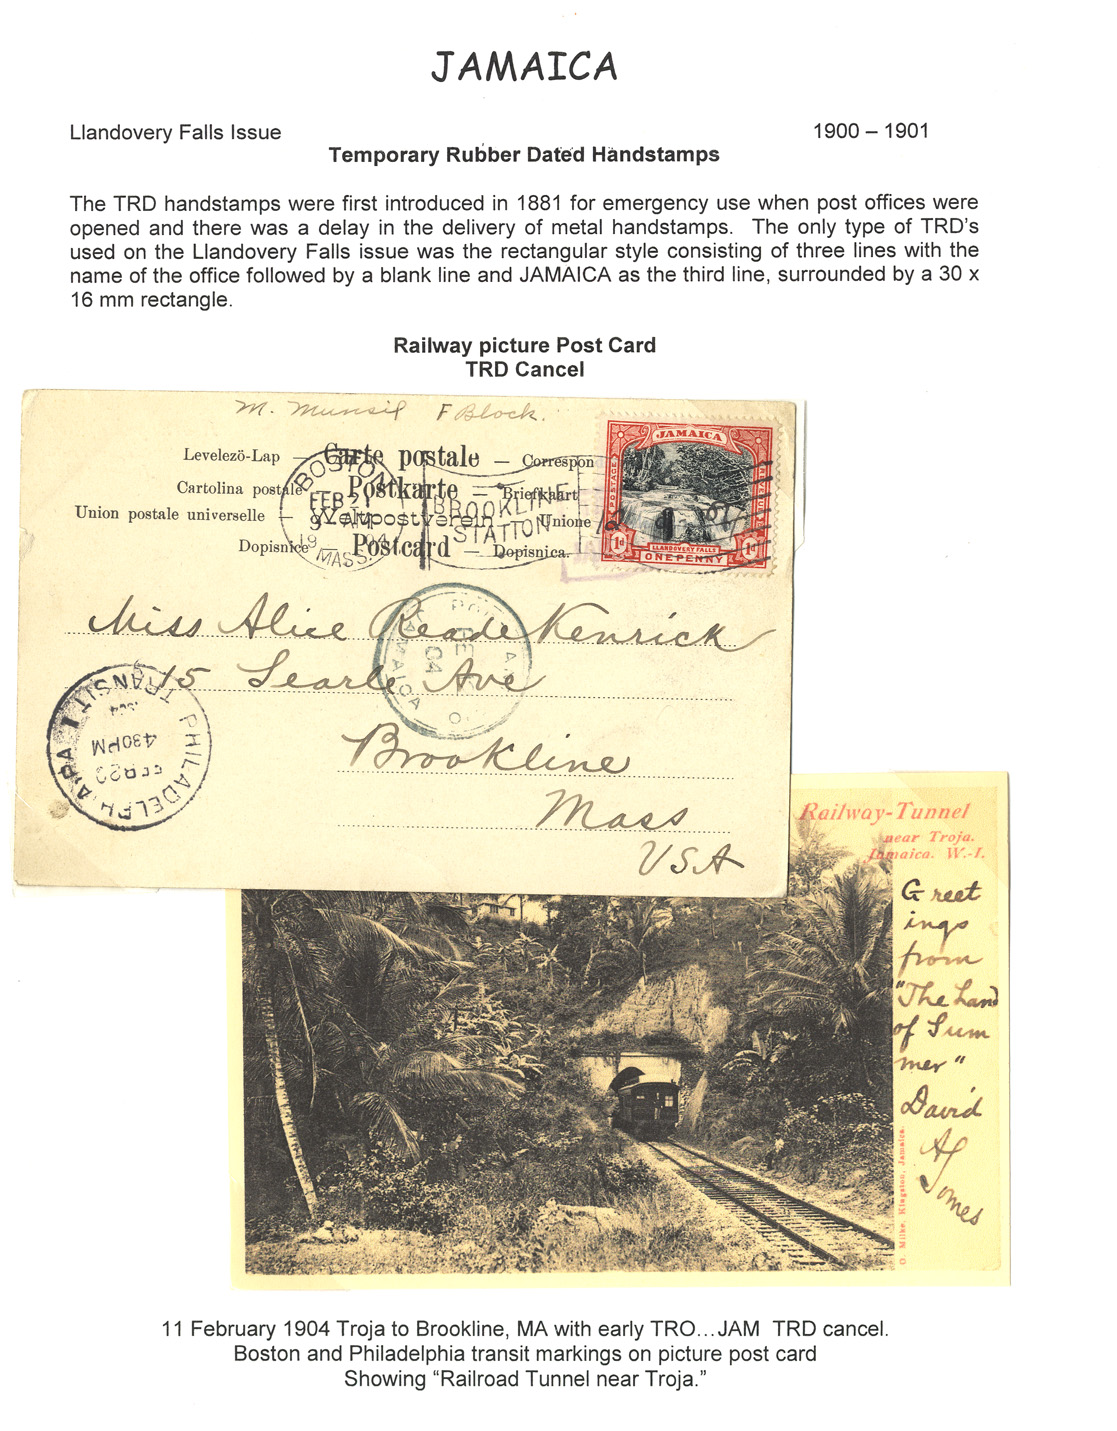 JAMAICA
Llandovery Falls Issue
1900 – 1901
Temporary Rubber Dated Handstamps
The TRD handstamps were first introduced in 1881 for emergency use when post offices were
opened and there was a delay in the delivery of metal handstamps. The only type of TRD's
used on the Llandovery Falls issue was the rectangular style consisting of three lines with the
name of the office followed by a blank line and JAMAICA as the third line, surrounded by a 30 x
16 mm rectangle.
Railway picture Post Card
TRD Cancel
M. Munsil F Block.
Levelezö-Lap — Carte postale — Correspon
Cartolina postale Postkarte — Briefkaart
Union postale universelle — Weltpostverein — Unione
Dopisnice Postcard — Dopisnica.
BOSTON
FEB 21
9 AM
1904
MASS.
BROOKLINE
STATION
JAMAICA
POSTAGE
LLANDOVERY FALLS
1d ONE PENNY 1d
JAMAICA
04
Miss Alice Reade Kenrick
15 Searle Ave
Brookline
Mass
USA
PHILADELPHIA, PA.
TRANSIT
1904
430PM
FEB 20
Railway-Tunnel
near Troja.
Jamaica. W.-I.
Greet
ings
from
"The Land
of Sum
mer"
David
A
Jomes
O. Milke, Kingston, Jamaica.
11 February 1904 Troja to Brookline, MA with early TRO...JAM TRD cancel.
Boston and Philadelphia transit markings on picture post card
Showing "Railroad Tunnel near Troja."